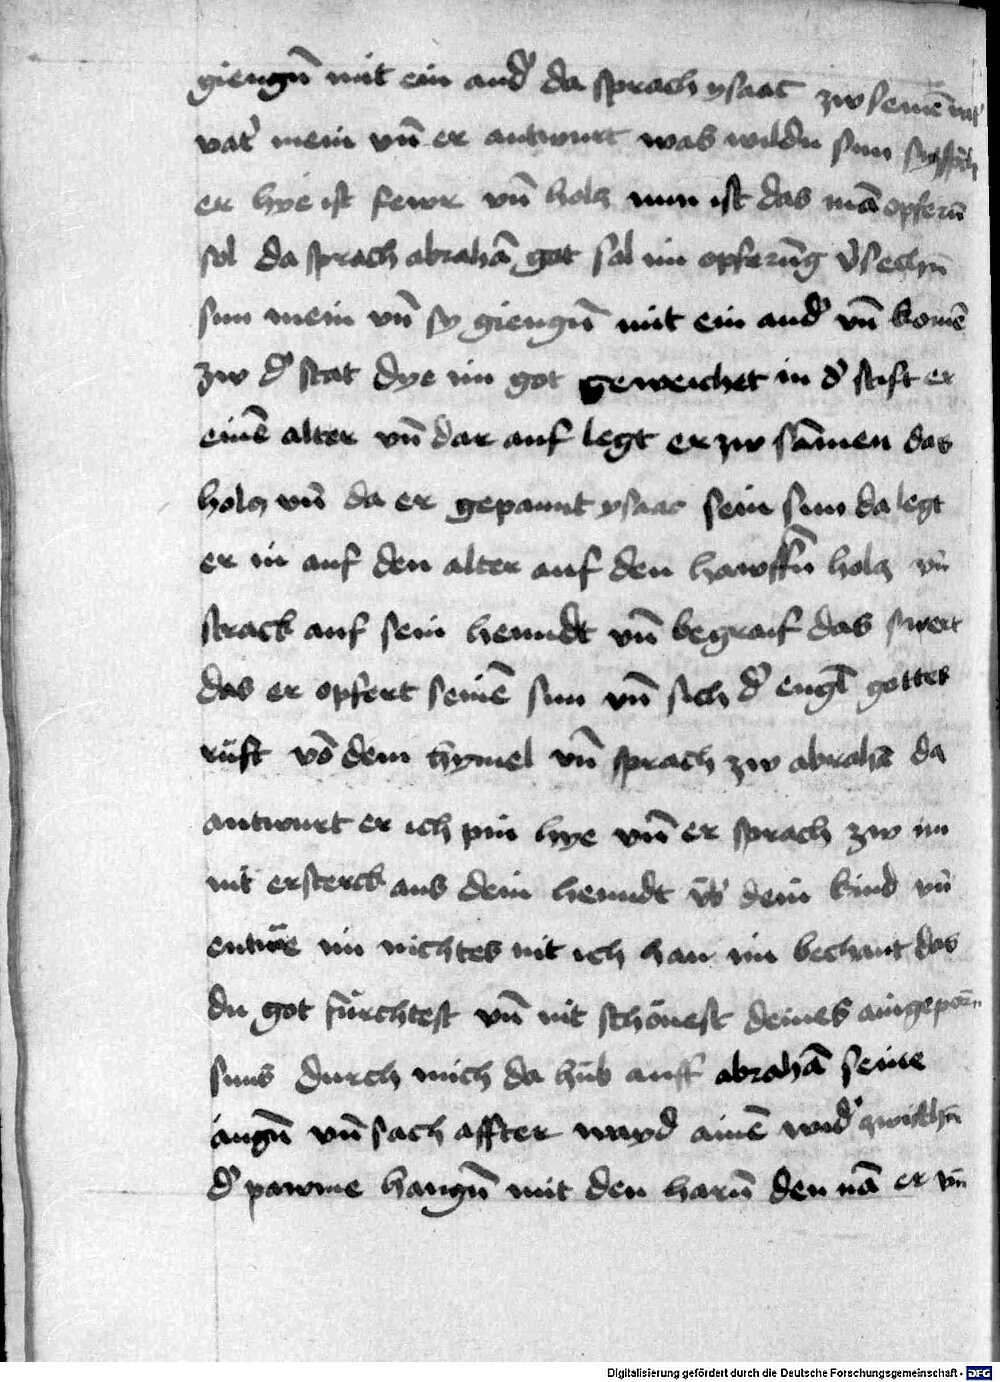 giengn̄ mit ein and᷑ da sprach ysaac zw seinē vat᷑
vat᷑ mein vn̄ er antwurt was wildu sun sprach
er hye ist fewr vn̄ holcz nun ist das mā opfern̄
sol da sprach abrahā got sol im opferūg v᷑sechn̄
sun mein vn̄ sy giengn̄ mit ein and᷑ vn̄ komē
zw d᷑ stat dye im got geweichet in d᷑ stift er
einē alter vn̄ dar auf legt er zw sāmen das
holcz vn̄ da er gepannt ysaac sein sun da legt
er in auf den alter auf den hawffn̄ holcz vn̄
strack auf sein henndt vn̄ begraif das swert
das er opfert seinē sun vn̄ sich d᷑ engl̄ gottes
rüft vō dem hymel vn̄ sprach zw abrahā da
antwurt er ich pin hye vn̄ er sprach zw im
nit ersterck aus dein henndt üb᷑ dein kind vn̄
entüe im nichtes nit ich han nu bechant das
du got fürchtest vn̄ nit schönest deines aingeporn̄
suns durch mich da hüb auff abrahā seine
augn̄ vn̄ sach affter wayd ainē wid᷑ zwischn̄
d᷑ pawme hangn̄ mit den harn̄ den nā er vn̄
Digitalisierung gefördert durch die Deutsche Forschungsgemeinschaft - DFG